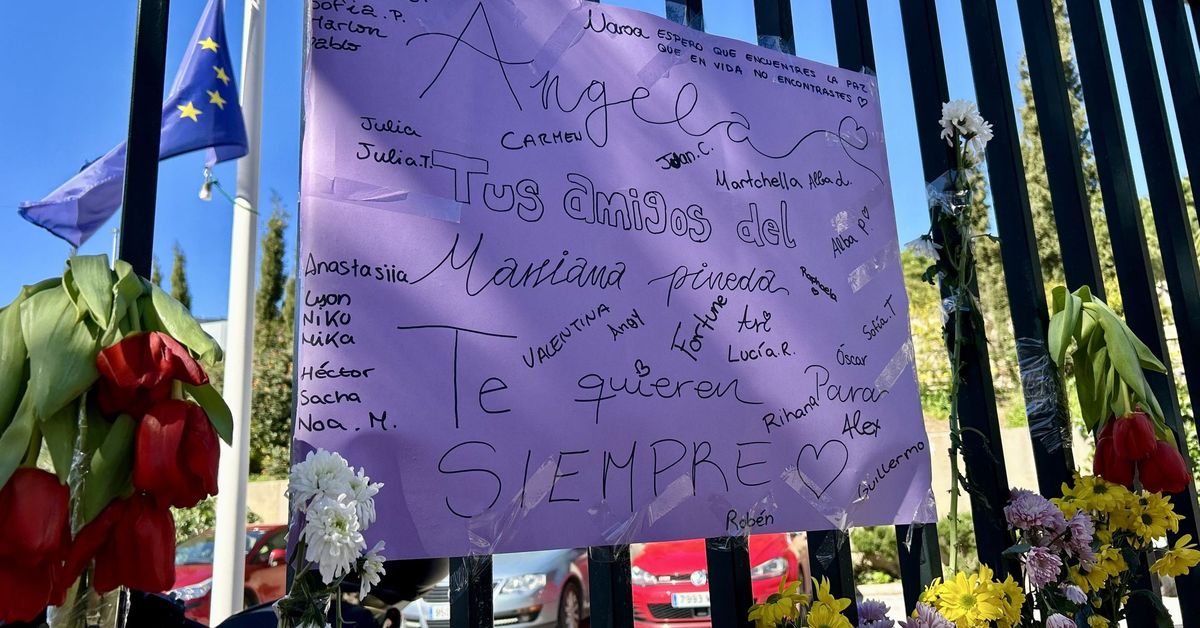 Sofía.P.
Marlon
Pablo
Naroa ESPERO QUE ENCUENTRES LA PAZ
QUE EN VIDA NO ENCONTRASTES
Angela
Julia
CARMEN
Julia.T.
Juan.C.
Martchella Alba d.
Tus amigos del
Alba P.
Anastasiia Mariana pineda
Raphaela
Lyon
Niko
Nika
VALENTINA Angy Fortune Ari
Sofía.T
Lucía.R.
Óscar
Héctor
Te quieren Para
Sacha
Rihana
Alex
Noa.M.
SIEMPRE
Guillermo
Robén